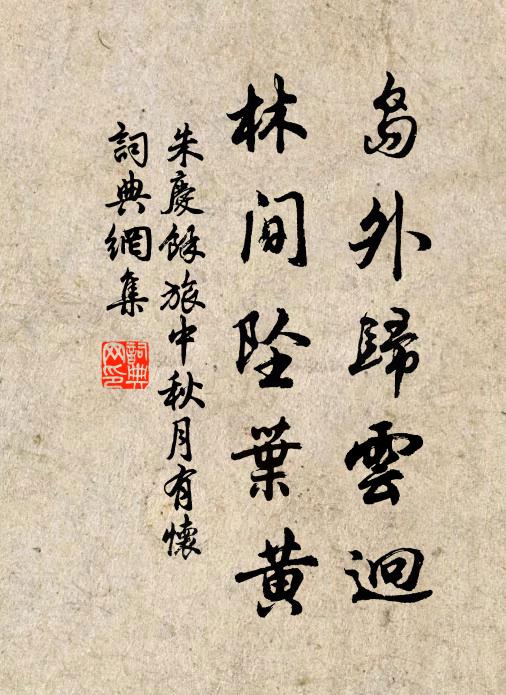 島外歸雲迥
林間墜葉黃
朱慶餘旅中秋月有懷
詞典網集
詞典
网印